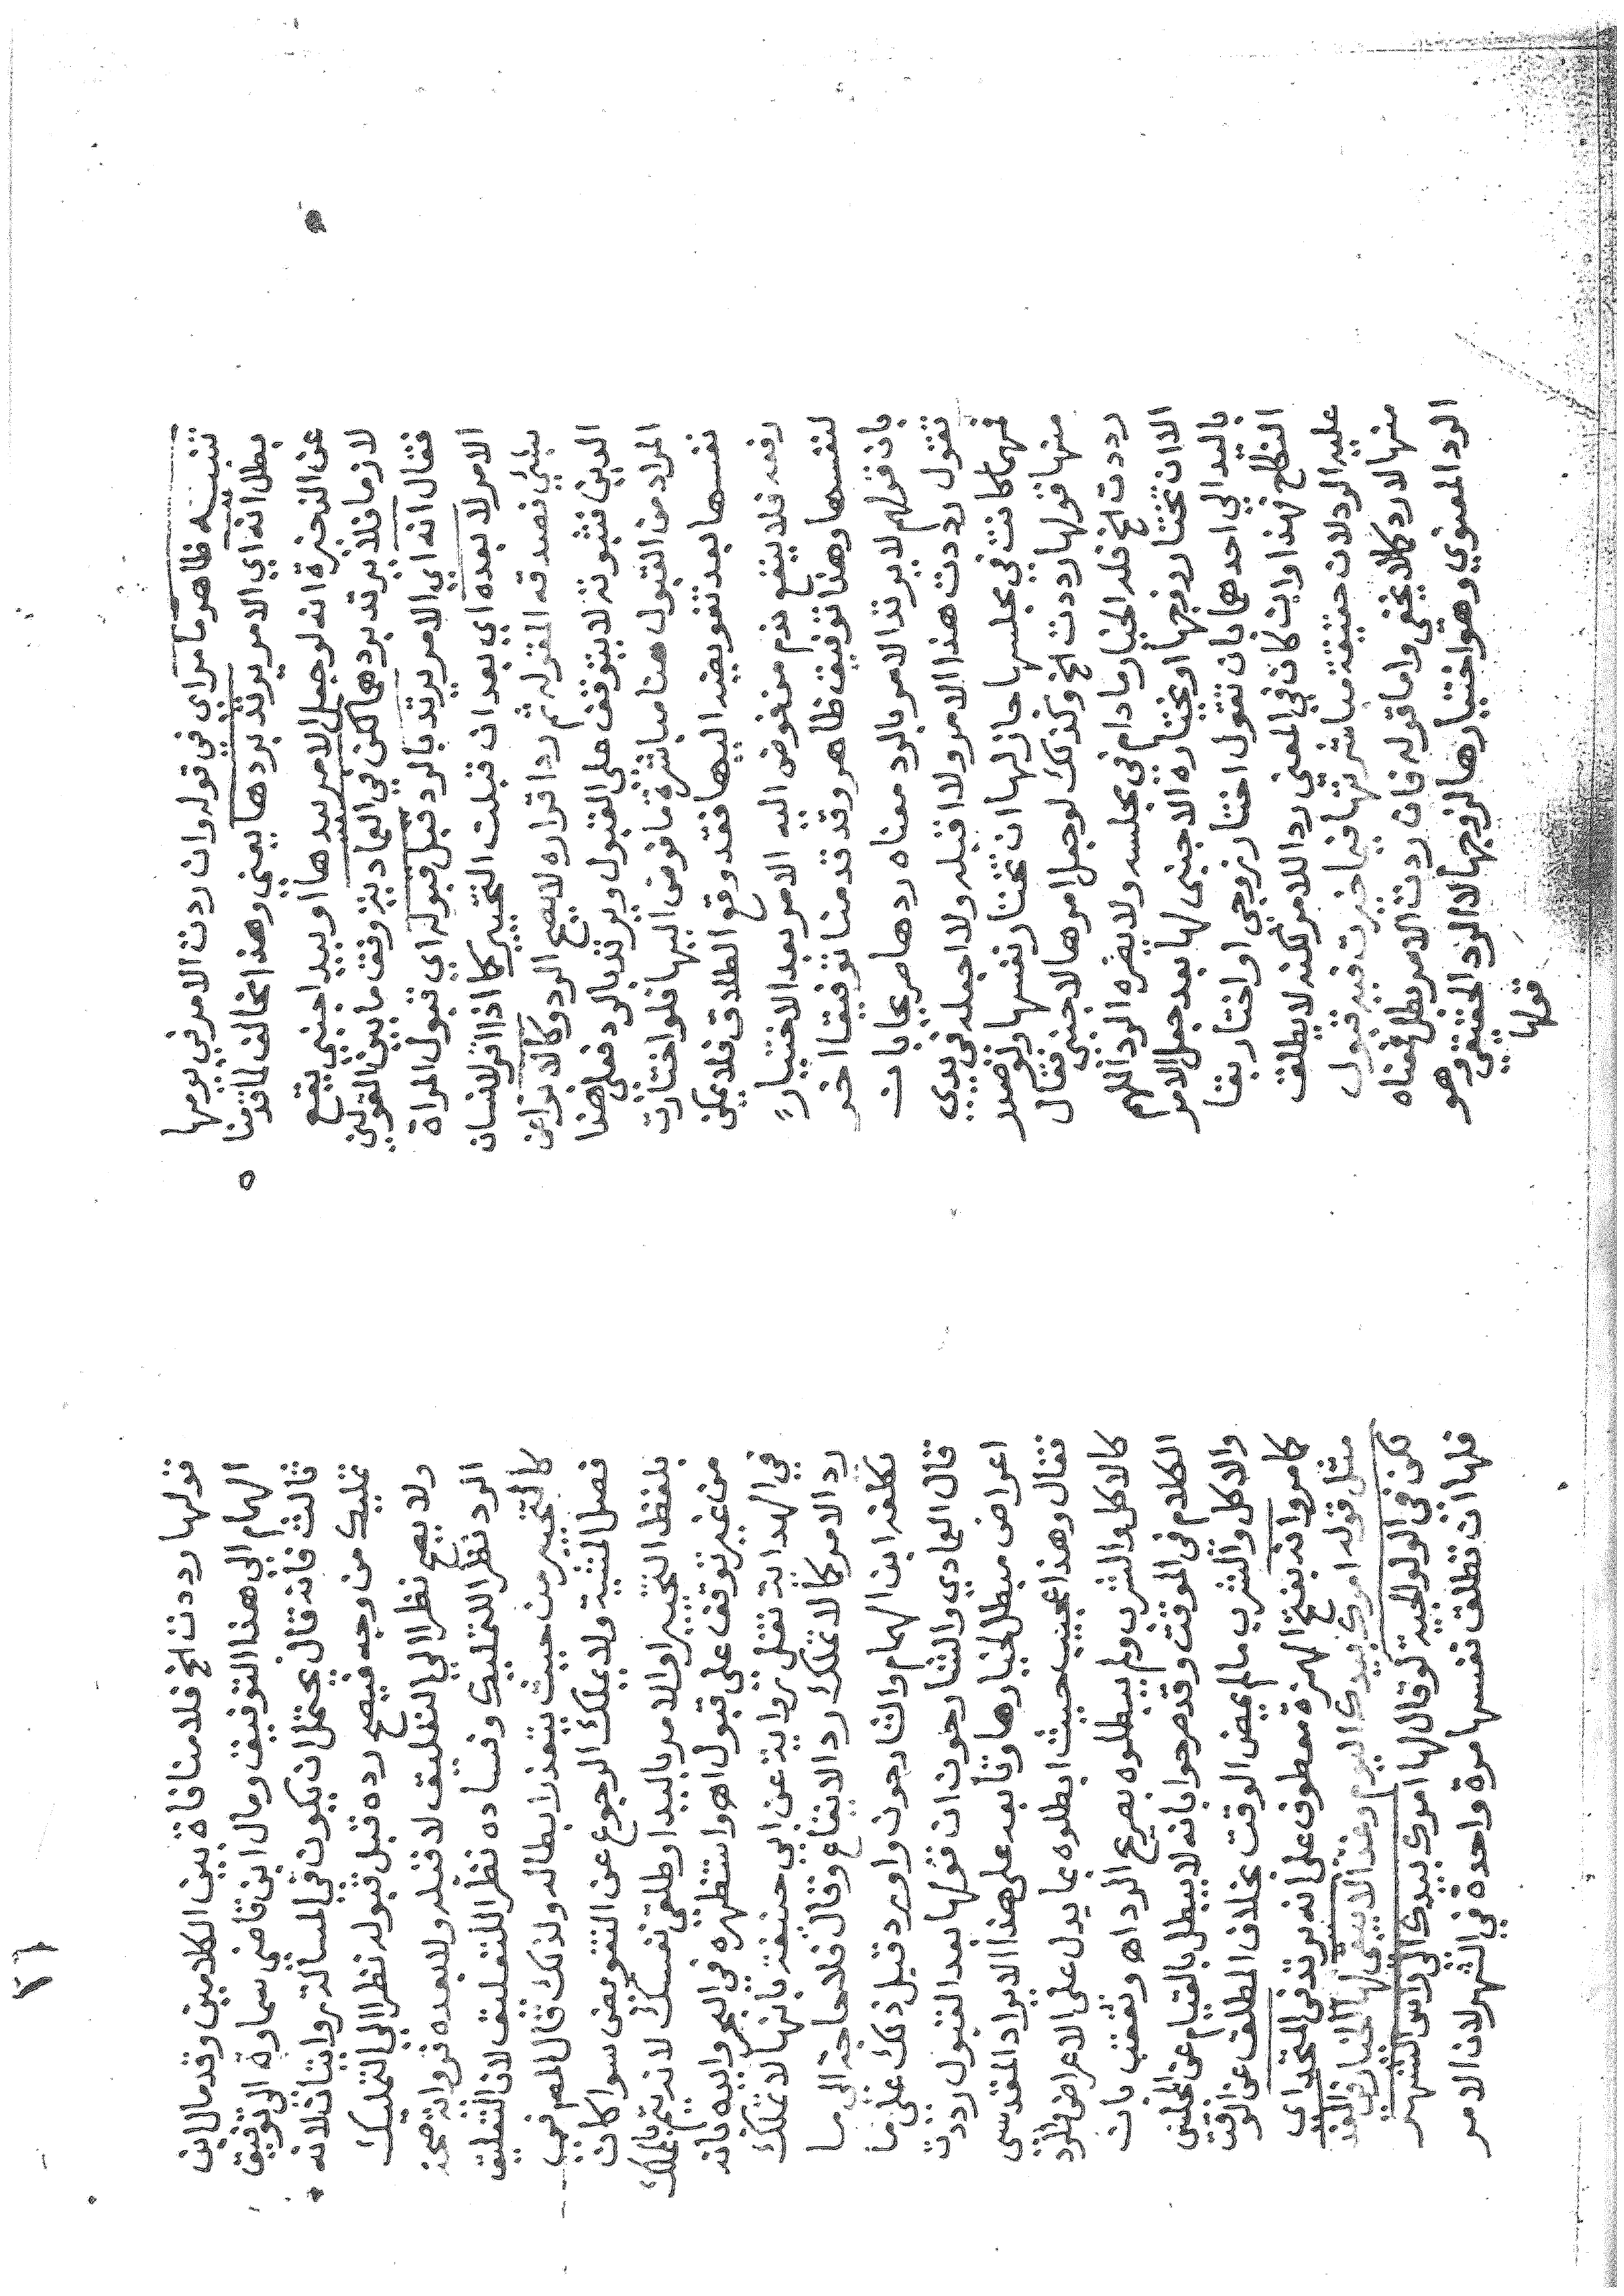 تنبيه ظاهر ما مر اي في قوله وان ردت الامر في يومها
بطل انه اي الامر يرتد بردها يعني وهذا مخالف لما قدمنا
عن الذخيرة انه لو جعل الامر بيدها او بيد اجنبي يقع
لازما فلا يرتد بردهما لكن في العمادية ووفق ما بين القولين
فقال انه اي الامر يرتد بالرد قبل قبوله اي قبول المراة
الامر لا بعده اي بعد ان قبلت التخيير كما اذا اقر لانسان
بشي فصدقه المقر له ثم رد اقراره لا يصح الرد وكالابرا عن
الدين فثبوته لا يتوقف على القبول ويرتد بالرد فعلى هذا
المراد من القبول هنا مباشرة ما فوض اليها فلو اختارت
نفسها بعد تفويضه اليها فقد وقع الطلاق فلا يمكن
رفعه فلا ينفع ندم مفوض اليه الامر بعد الاختيار
لنفسها وهنا توفيق ظاهر وقد قدمنا توفيقا اخر
بان قولهم لا يرتد الامر بالرد معناه ردها صريحا بان
تقول رددت هذا الامر ولا اقبله ولا اجعله في يدي
فمهما كانت في مجلسها جاز لها ان تختار نفسها ولو صدر
منها قولها رددت الخ وكذلك لو جعل امرها لاجنبي فقال
رددت الخ فله الخيار ما دام في مجلسه ولا يضره الرد اللهم
الا ان تختار زوجها او يختاره الاجنبي لها بعد جعل الامر
باليد الي احدهما بان تقول اختار زوجي او اختار بقا
النكاح فهذا وان كان في المعني ردا للامر لكنه لا يطلق
عليه الرد لان حقيقة مباشرتها فيما خيرت فيه قبول
منها لا رد كما لا يخفى واما قوله فان ردت الامر بطل فمعناه
الرد المعنوي وهو اختيارها لزوجها لا الرد الحقيقي وهو
قولها
٢٦
قولها رددت الخ فلا منافاة بين الكلامين وقد مال ابن
الهمام الي هذا التوفيق ومال ابن قاضي سماوة الى توفيق
ثالث فانه قال يحتمل ان يكون في المسالة روايتان لانه
تمليك من وجه فيصح رده قبل قبوله نظرا الي التمليك
ولا يصح نظرا الي التعليق لا قبله ولا بعده فرواية صحة
الرد نظرا للتمليك وفساده نظرا للتعليق لان التعليق
كالتخيير من حيث يتعذر ابطاله ولذلك قال المص في
فصل المشية ولا يملك الرجوع عن التفويض سوا كان
بلفظ التخيير او الامر باليد او طلقي نفسك لانه يتم بالملك
من غير توقف على قبول اهـ واستظهره في البحر وايده بانه
في الهداية نقل رواية عن ابي حنيفة بانها لا تملك
رد الامر كما لا تملك رد الايقاع وقال فلا حاجة الى ما
تكلفه ابن الهمام والشارحون واورد قبل ذلك على ما
قال العمادي والشارحون ان قولها بعد القبول رددت
اعراض مبطل لخيارها وتابعه على هذا الايراد المقدسي
فقال وهذا عجيب حيث ابطلوه بما يدل على الاعراض والرد
كالاكل والشرب ولم يبطلوه بصريح الرد اهـ وتعقب بان
الكلام في الموقت وقد مر جوابا بانه لا يبطل بالقيام عن المجلس
والاكل والشرب ما لم يمض الوقت بخلاف المطلق عن الوقت
كما مر وانه بفتح الهمزة معطوف على انه يرتد في المتحد اي
مثل قوله امرك بيدك اليوم وغدا لا يبقى لها الخيار في الغد
لكن في الولوالجية لو قال لها امرك بيدك الى راس الشهر
فلها ان تطلق نفسها مرة واحدة في الشهر لان الامر